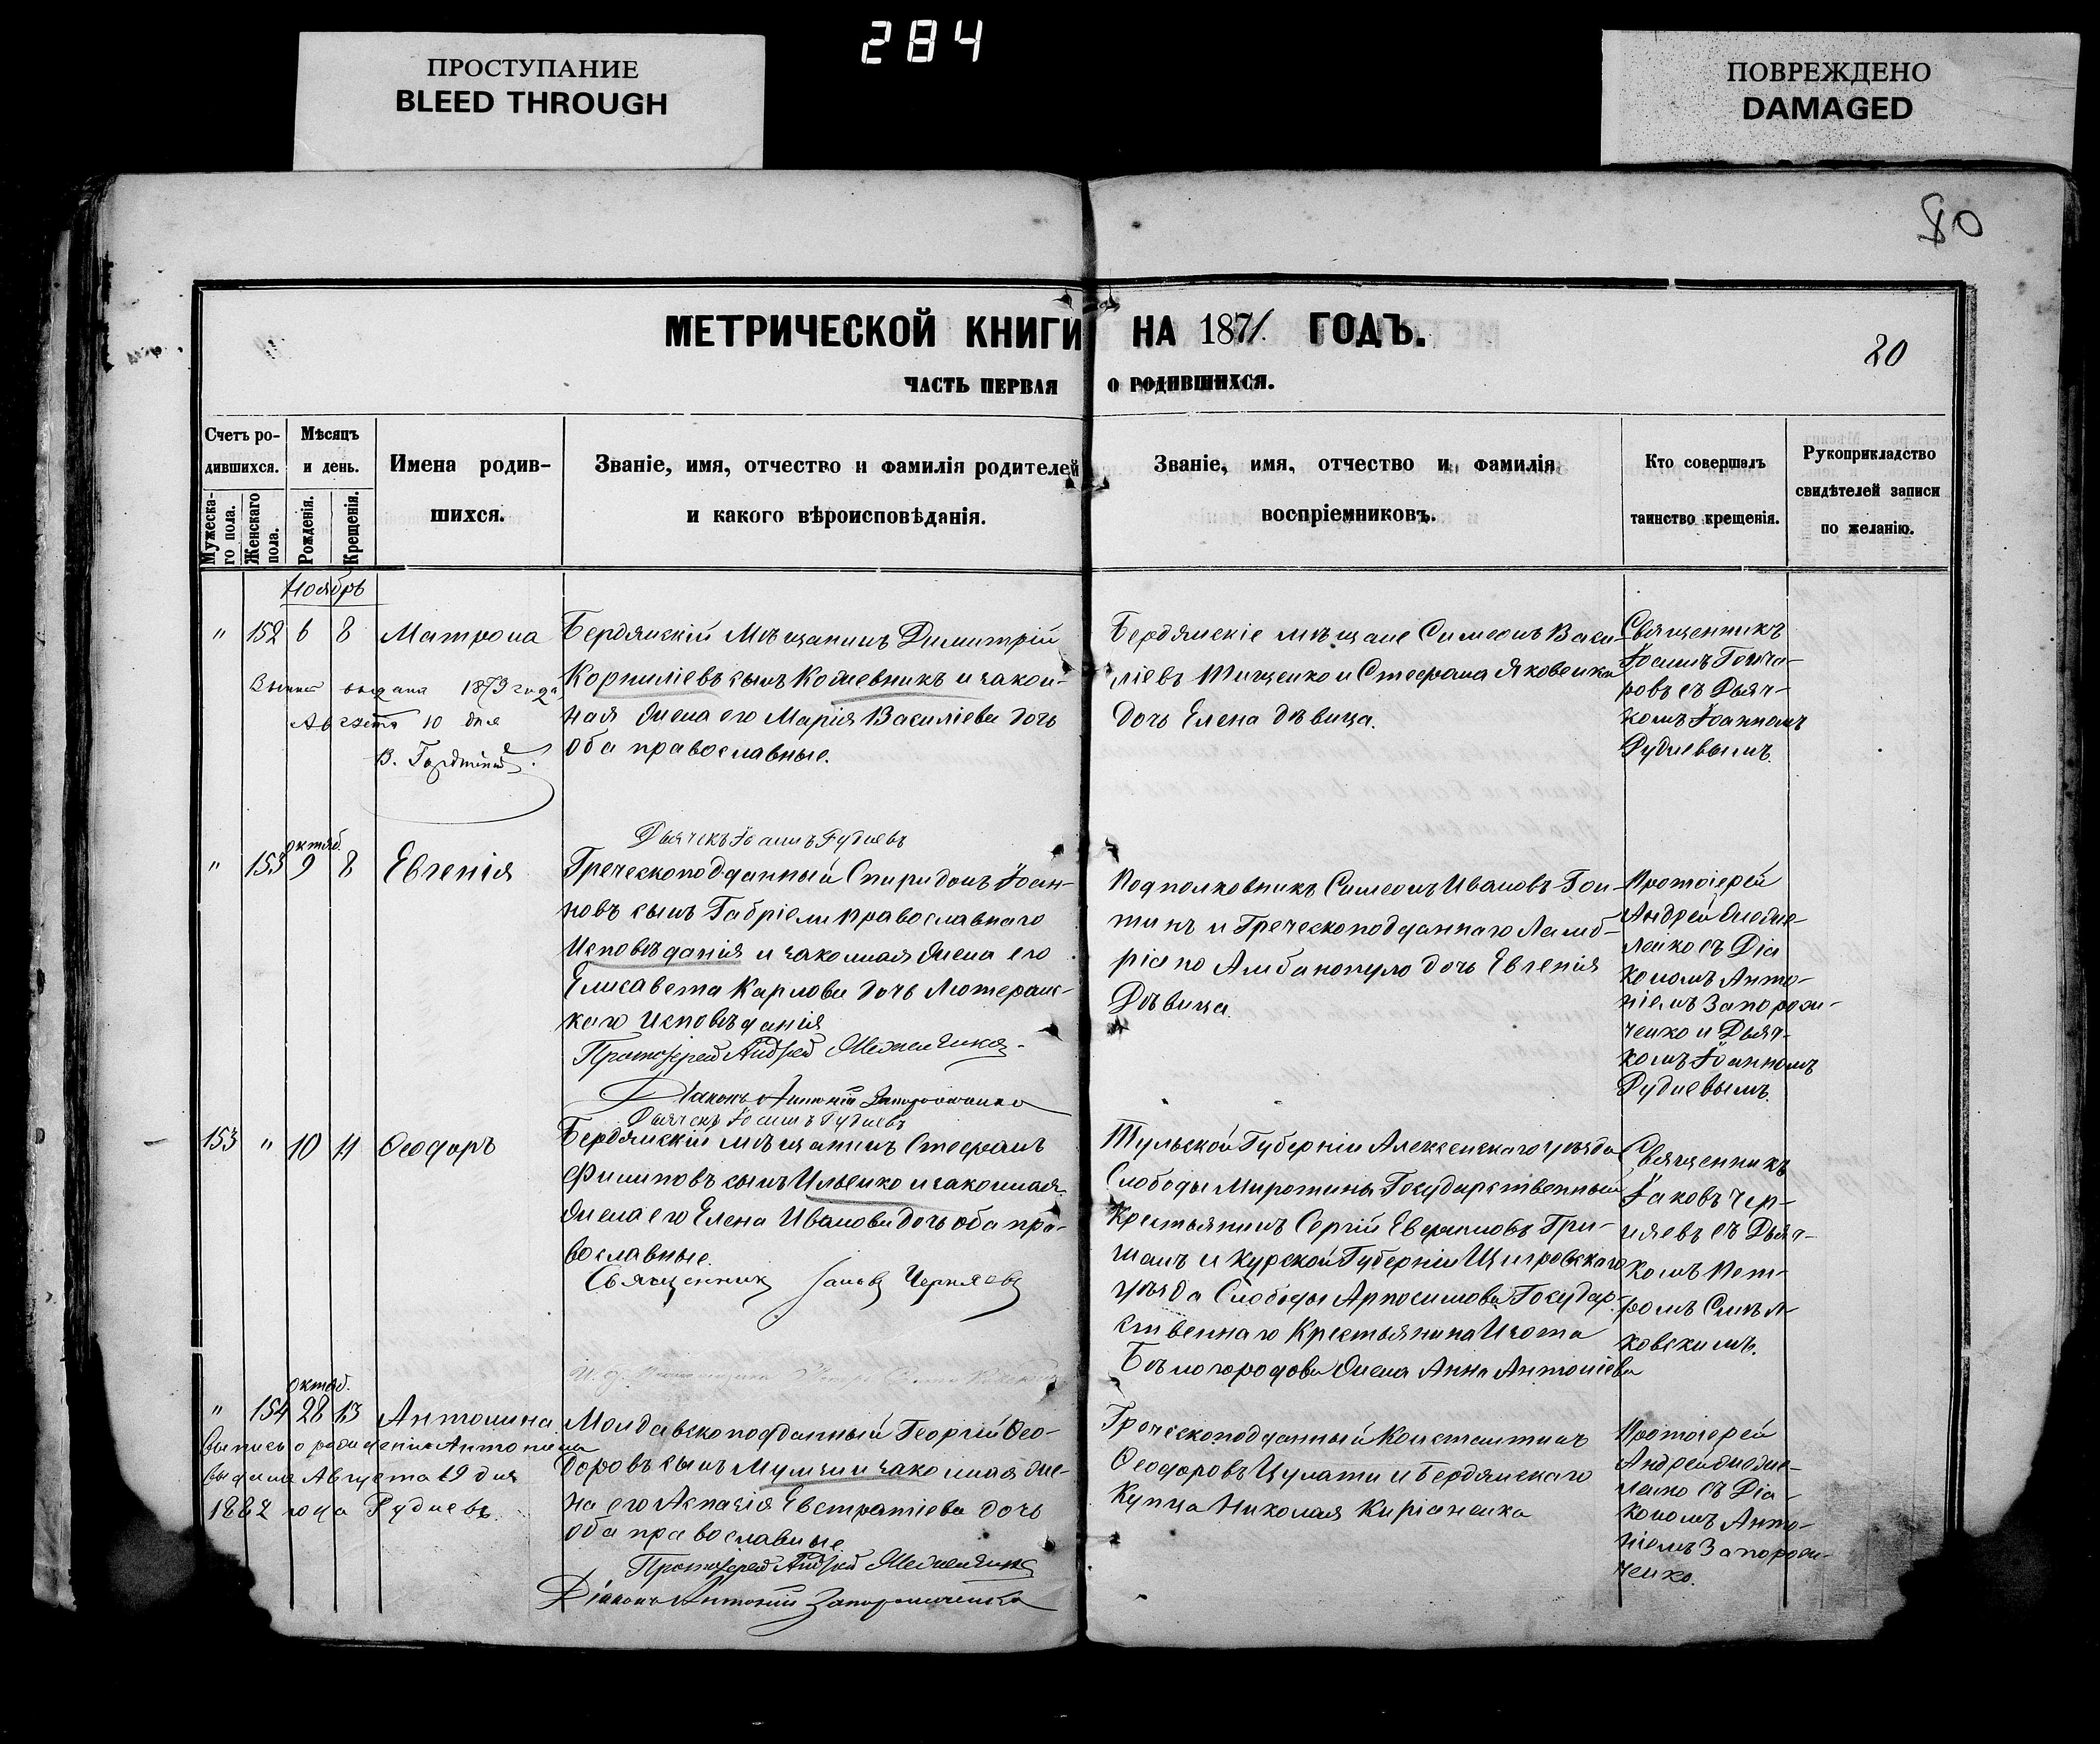 284
ПРОСТУПАНИЕ
BLEED THROUGH
ПОВРЕЖДЕНО
DAMAGED
80
МЕТРИЧЕСКОЙ КНИГИ НА 1871 ГОДЪ.
20
ЧАСТЬ ПЕРВАЯ О РОДИВШИХСЯ.
Счетъ ро-
дившихся.
Мужеска-
го пола.
Женскаго
пола.
Мѣсяцъ
и день.
Рожденія.
Крещенія.
Имена родив-
шихся.
Званіе, имя, отчество и фамилія родителей
и какого вѣроисповѣданія.
Званіе, имя, отчество и фамилія
воспріемниковъ.
Кто совершалъ
таинство крещенія.
Рукоприкладство
свидѣтелей записи
по желанію.
Ноябрь
" 152 6 8 Матрона
выдана 1873 года
Августа 10 дня
В.
Бердянскій Мѣщанинъ Димитрій
Корниліевъ сынъ Кожевникъ и закон-
ная жена его Марія Василіева дочь
оба православные.
Дьячекъ Іоаннъ Рудневъ
Бердянскіе мѣщане Симеонъ Васи-
ліевъ Тищенко и Стефана Яковенка
дочь Елена дѣвица.
Священникъ
Іоаннъ Гонча-
ровъ съ Дьяч-
комъ Іоанномъ
Рудневымъ.
октяб.
" 153 9 8 Евгенія
Греческоподданный Спиридонъ Іоан-
новъ сынъ Габріели православнаго
Исповѣданія и законная жена его
Елисавета Карлова дочь Лютеранс-
каго Исповѣданія
Протоіерей Андрей Межененко
Діаконъ Антоній Запорожченко
Дьячекъ Іоаннъ Рудневъ
Подполковникъ Симеонъ Ивановъ Гон-
тинъ и Греческоподданнаго Ламб-
ріано Амбанопуло дочь Евгенія
Дѣвица.
Протоіерей
Андрей
съ Діа
кономъ Анто-
ніемъ Запорож-
ченко и Дьяч-
комъ Іоанномъ
Рудневымъ.
153 " 10 11 Ѳеодоръ
Бердянскій мѣщанинъ Стефанъ
Филиповъ сынъ Ильенко и законная
жена его Елена Иванова дочь оба пра-
вославные.
Священникъ Іаковъ Черняевъ
Тульской Губерніи Алексенскаго уѣзда
Слободы Миротины Государственный
Крестьянинъ Сергій Ефимовъ Гри-
шанъ и Курской Губерніи Щигровскаго
уѣзда Слободы Арпосимова Государ-
ственнаго Крестьянина Изота
Бѣлогородова жена Анна Антоніева
Священникъ
Іаковъ Чер-
няевъ съ Дьяч-
комъ Пет-
ромъ Синьл-
ковскимъ.
октяб.
" 154 28 13 Антонина
выпись о рожденіи Антонины
выдана Августа 19 дня
1882 года Рудневъ.
Молдавскоподданный Георгій Ѳео-
доровъ сынъ Мумжи и законная же-
на его Аспазія Евстратіева дочь
оба православные
Протоіерей Андрей Межененко
Діаконъ Антоній Запорожченко
Греческоподданный Константинъ
Ѳеодоровъ Цумати и Бердянскаго
Купца Николая Киріанска
Протоіерей
Андрей
съ Діа-
кономъ Анто-
ніемъ Запорож-
ченко.